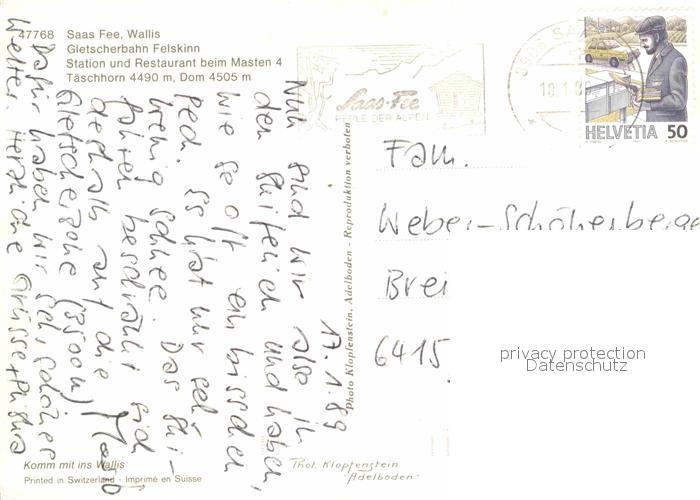 47768 Saas Fee, Wallis
Gletscherbahn Felskinn
Station und Restaurant beim Masten 4
Täschhorn 4490 m, Dom 4505 m
Saas-Fee
PERLE DER ALPEN
18.1.8
HELVETIA 50
17.1.89
Nun sind wir also in
den Skiferien und haben,
wie so oft ein bisschen
Pech. Es hat nur sehr
wenig Schnee. Das Ski-
fahren beschränkt sich
deshalb auf die
Gletscherzone (3500m)
Dafür haben wir sehr schönes
Wetter. Herzliche Grüsse
Photo Klopfenstein, Adelboden - Reproduktion verboten
Fam.
Weber-Schönenberger
Brei
6415
privacy protection
Datenschutz
Komm mit ins Wallis
Printed in Switzerland - Imprimé en Suisse
Phot. Klopfenstein
Adelboden